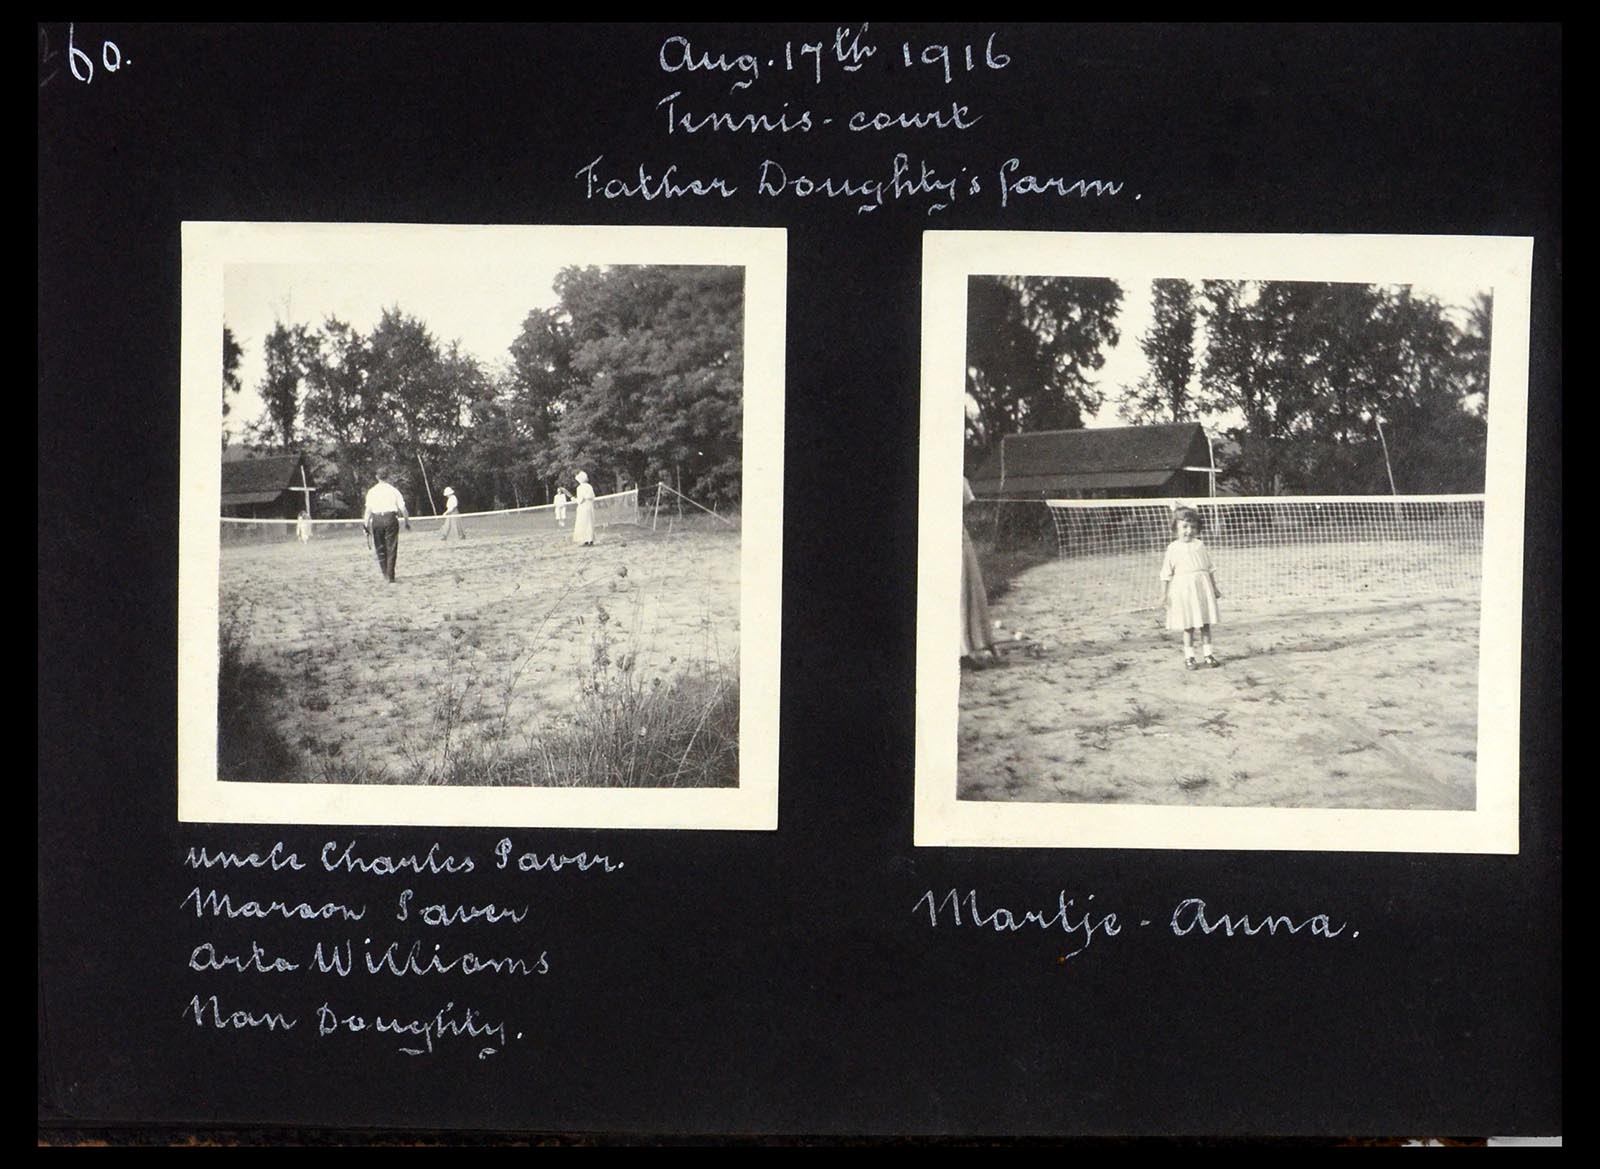 60.
Aug. 17th 1916
Tennis-court
Father Doughty's farm.
Uncle Charles Paver.
Marson Paver
Arta Williams
Nan Doughty.
Martje-Anna.